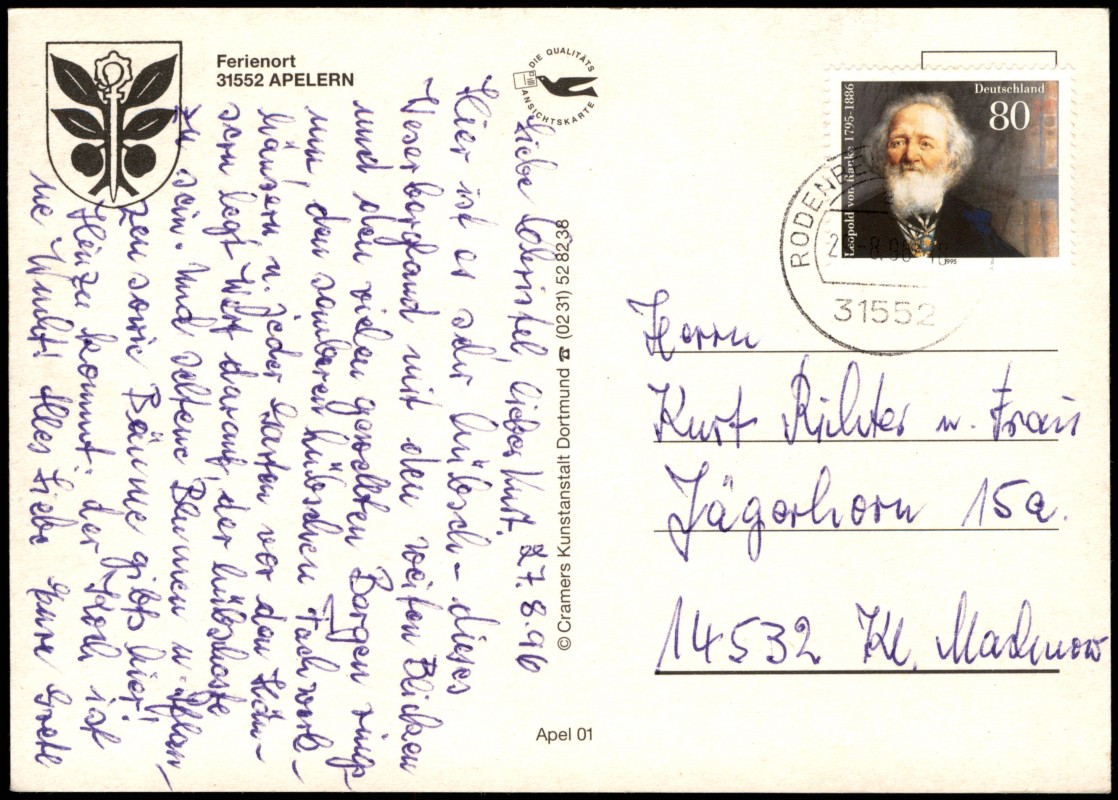 Ferienort
31552 APELERN
DIE QUALITÄTS
ANSICHTSKARTE
Liebe Christel, lieber Kurt, 27.8.96
Hier ist es sehr hübsch – dieses
Weserbergland mit den weiten Blicken
und den vielen gewellten Bergen rings
um, den sauberen hübschen Fachwerk-
häusern u. jeder Garten vor den Häu-
sern legt Wert darauf, der hübscheste
zu sein. Und seltene Blumen u. Pflan-
zen sowie Bäume gibts hier!
Hinzu kommt: der Koch ist
'ne Wucht! Alles Liebe Eure Grete
© Cramers Kunstanstalt Dortmund ☎ (02 31) 52 82 38
Apel 01
Deutschland
80
Leopold von Ranke 1795-1886
1995
RODENBE
8.96
31552
Herrn
Kurt Richter u. Frau
Jägerhorn 15a.
14532 Kl. Machnow